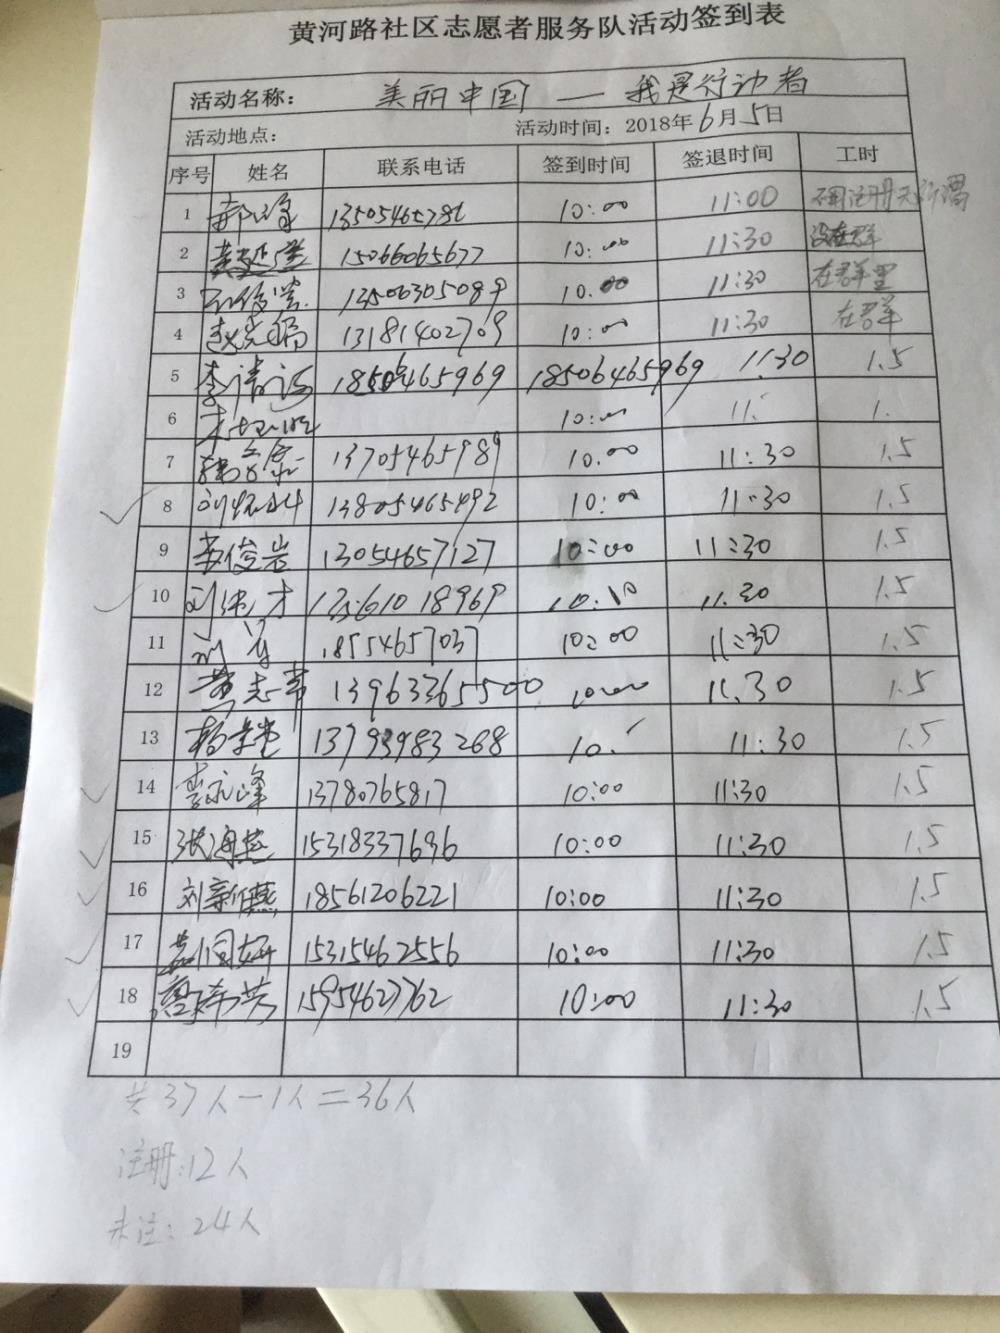 黄河路社区志愿者服务队活动签到表
活动名称： 美丽中国 — 我是行动者
活动地点： 活动时间：2018年6月5日
序号 姓名 联系电话 签到时间 签退时间 工时
1 郝 10:00 11:00 不用注册无所谓
2 15066065677 10:00 11:30 没在群
3 13506305089 10:00 11:30 在群里
4 13181402709 10:00 11:30 在群
5 李清海 18506465969 18506465969 11:30 1.5
6 10:00 11: 1.
7 13705465989 10:00 11:30 1.5
8 刘 13805465492 10:00 11:30 1.5
9 苏俊岩 13054657127 10:00 11:30 1.5
10 刘 才 13561018969 10:10 11:30 1.5
11 刘 18554657037 10:00 11:30 1.5
12 黄志 13963365500 10:00 11:30 1.5
13 杨 13793983268 10: 11:30 1.5
14 李永峰 13780765817 10:00 11:30 1.5
15 张海燕 15318337696 10:00 11:30 1.5
16 刘新燕 18561206221 10:00 11:30 1.5
17 15315462556 10:00 11:30 1.5
18 15954627762 10:00 11:30 1.5
19
共37人-1人=36人
注册：12人
未注：24人